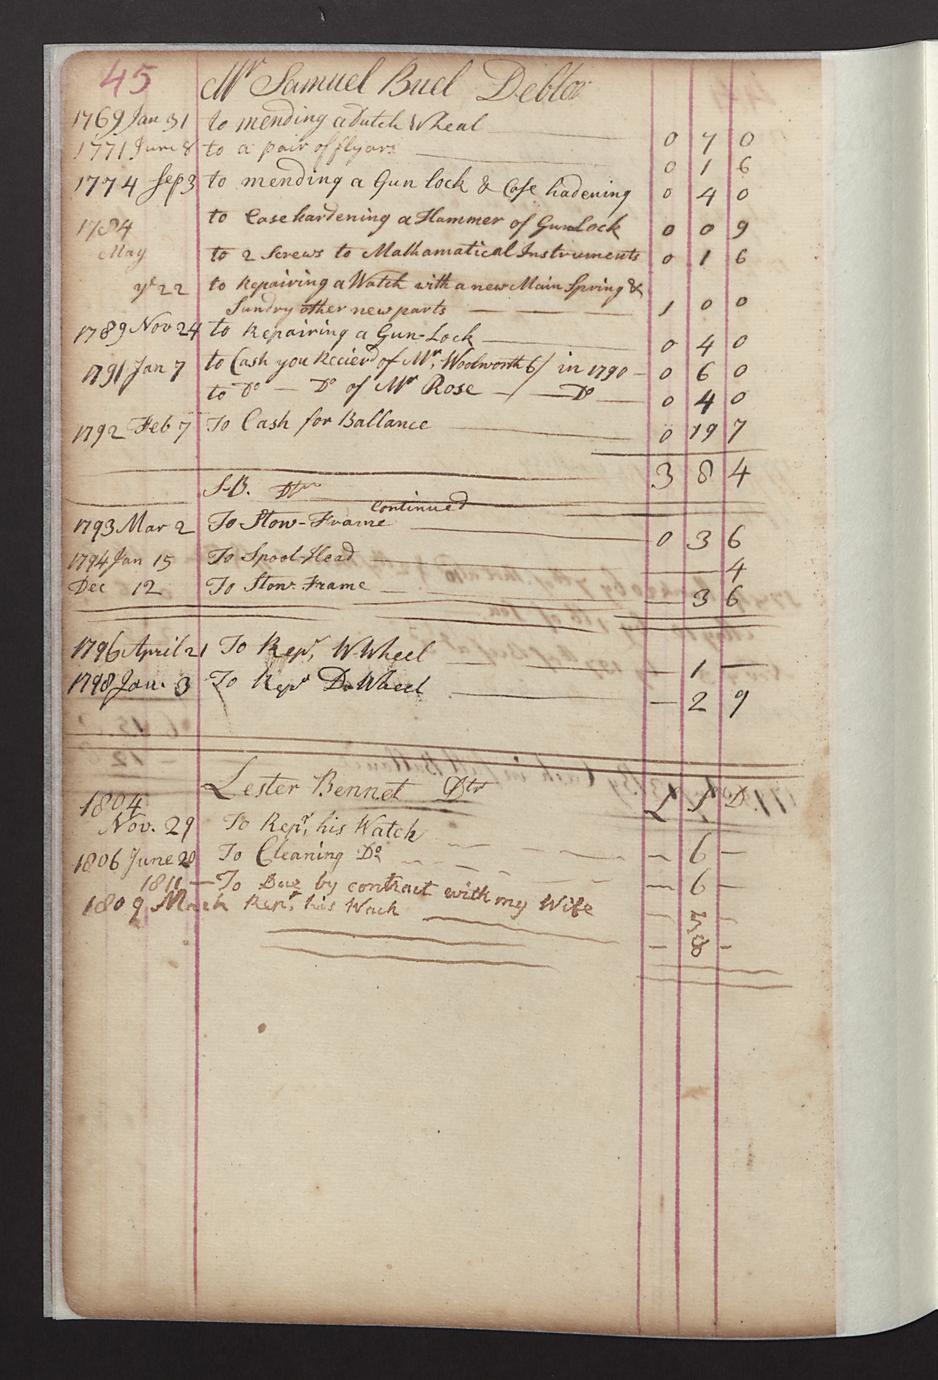 45 Mr Samuel Buel Debtor
1769 Jan 31 to mending a dutch Wheal 0 7 0
1771 June 8 to a pair of flyars 0 1 6
1774 Sep 3 to mending a Gun lock & Case hadening 0 4 0
1784 to Casehardening a Hammer of Gun Lock 0 0 9
May to 2 Screws to Mathamatical Instruments 0 1 6
ye 22 to Repairing a Watch with a new Main Spring &
Sundry other new parts 1 0 0
1789 Nov 24 to Repairing a Gun-Lock 0 4 0
1791 Jan 7 to Cash you Recievd of Mr. Woolworth 6/ in 1790 0 6 0
to Do — Do of Mr Rose — / — Do 0 4 0
1792 Feb 7 To Cash for Ballance 0 19 7
3 8 4
S-B. Dtr
continued
1793 Mar 2 To Stow-Frame 0 3 6
1794 Jan 15 To Spool-Head 4
Dec 12 To Stow-Frame 3 6
1796 April 21 To Repr. W-Wheel — 1 —
1798 Jan. 3 To Repr D-Wheel — 2 9
Lester Bennet Dtr L S D
1804
Nov. 29 To Repr. his Watch — 6 —
1806 June 20 To Cleaning Do — 6 —
1811 — To Due by contract with my Wife — 3 —
1809 March Repr. his Wach — 8 —